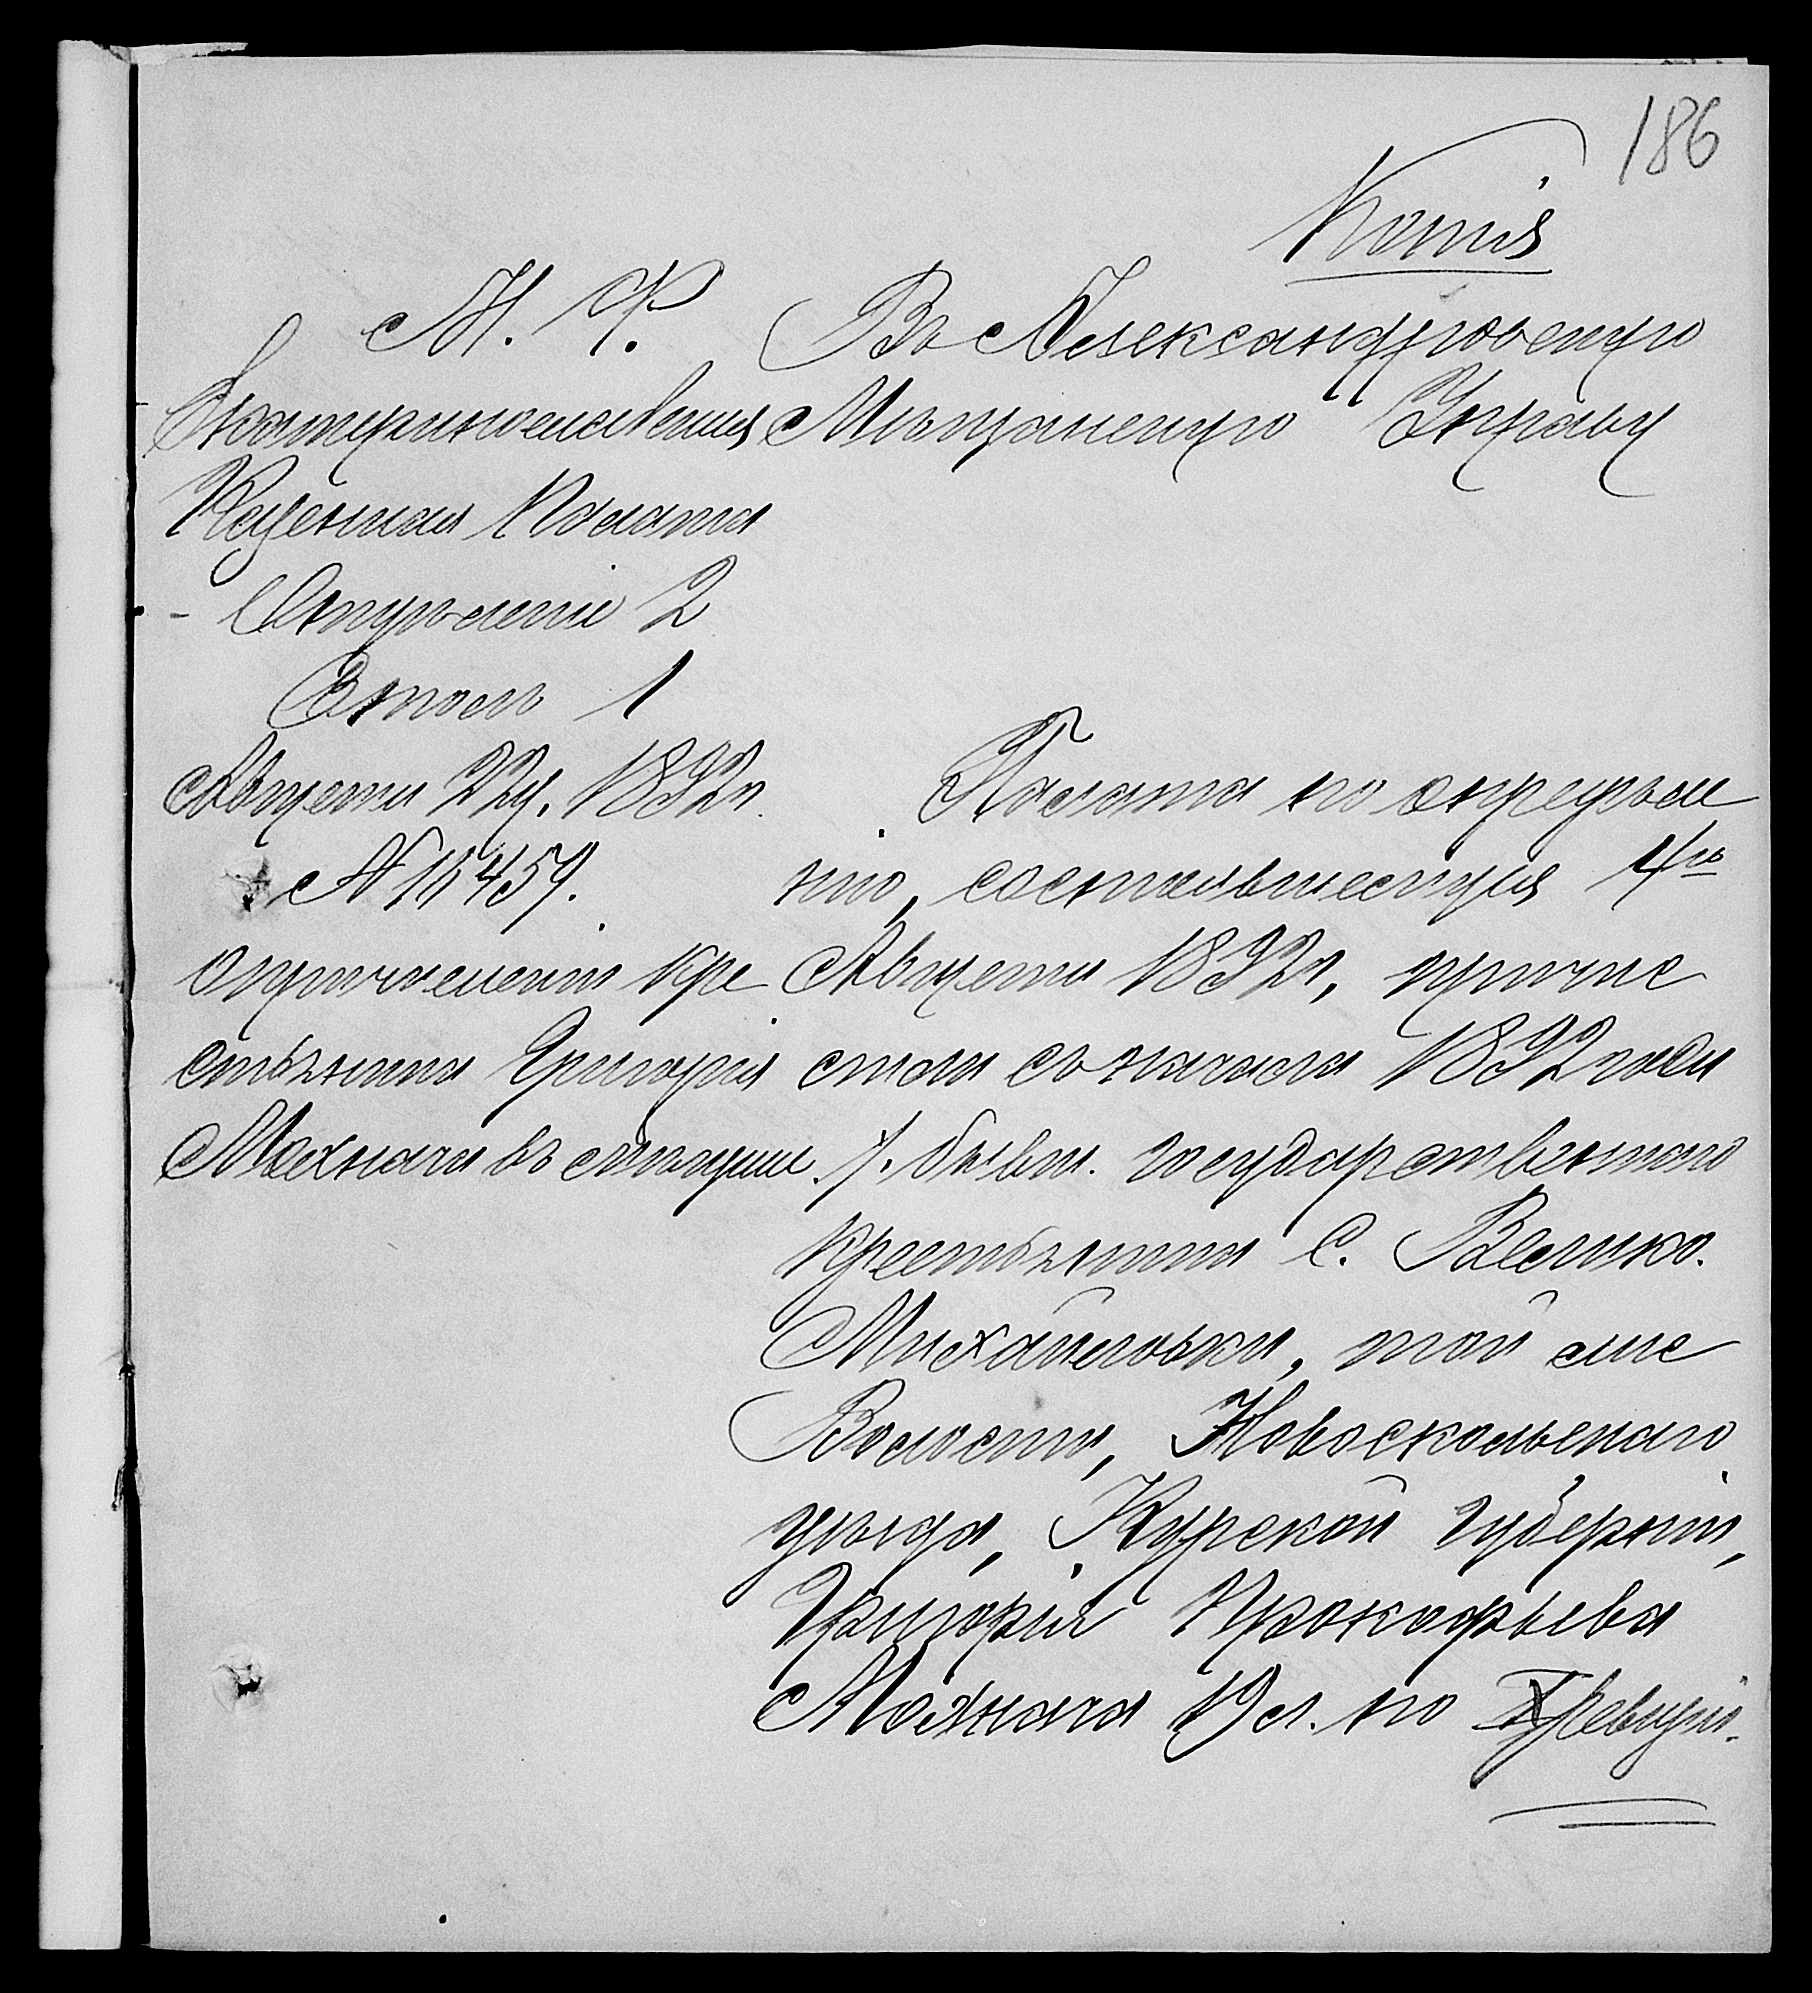 186
Копія
М. Ф.
Екатеринославская
Казенная Палата
Отдѣленіе 2
Столъ 1
Августа 22 д. 1892 г.
№ 10459.
о причисленіи кре
стьянина Григорія
Махнача въ мѣщане.
Въ Александровскую
Мѣщанскую Управу
Палата по опредѣле
нію, состоявшемуся 4го
Августа 1892 г., причис
лила съ начала 1892 года
/. бывш. государственнаго
крестьянина с. Велико.
Михайловки, той же
Волости, Новоскольскаго
уѣзда, Курской губерніи,
Григорія Прокофьева
Махнача 19 л. по X ревизіи.